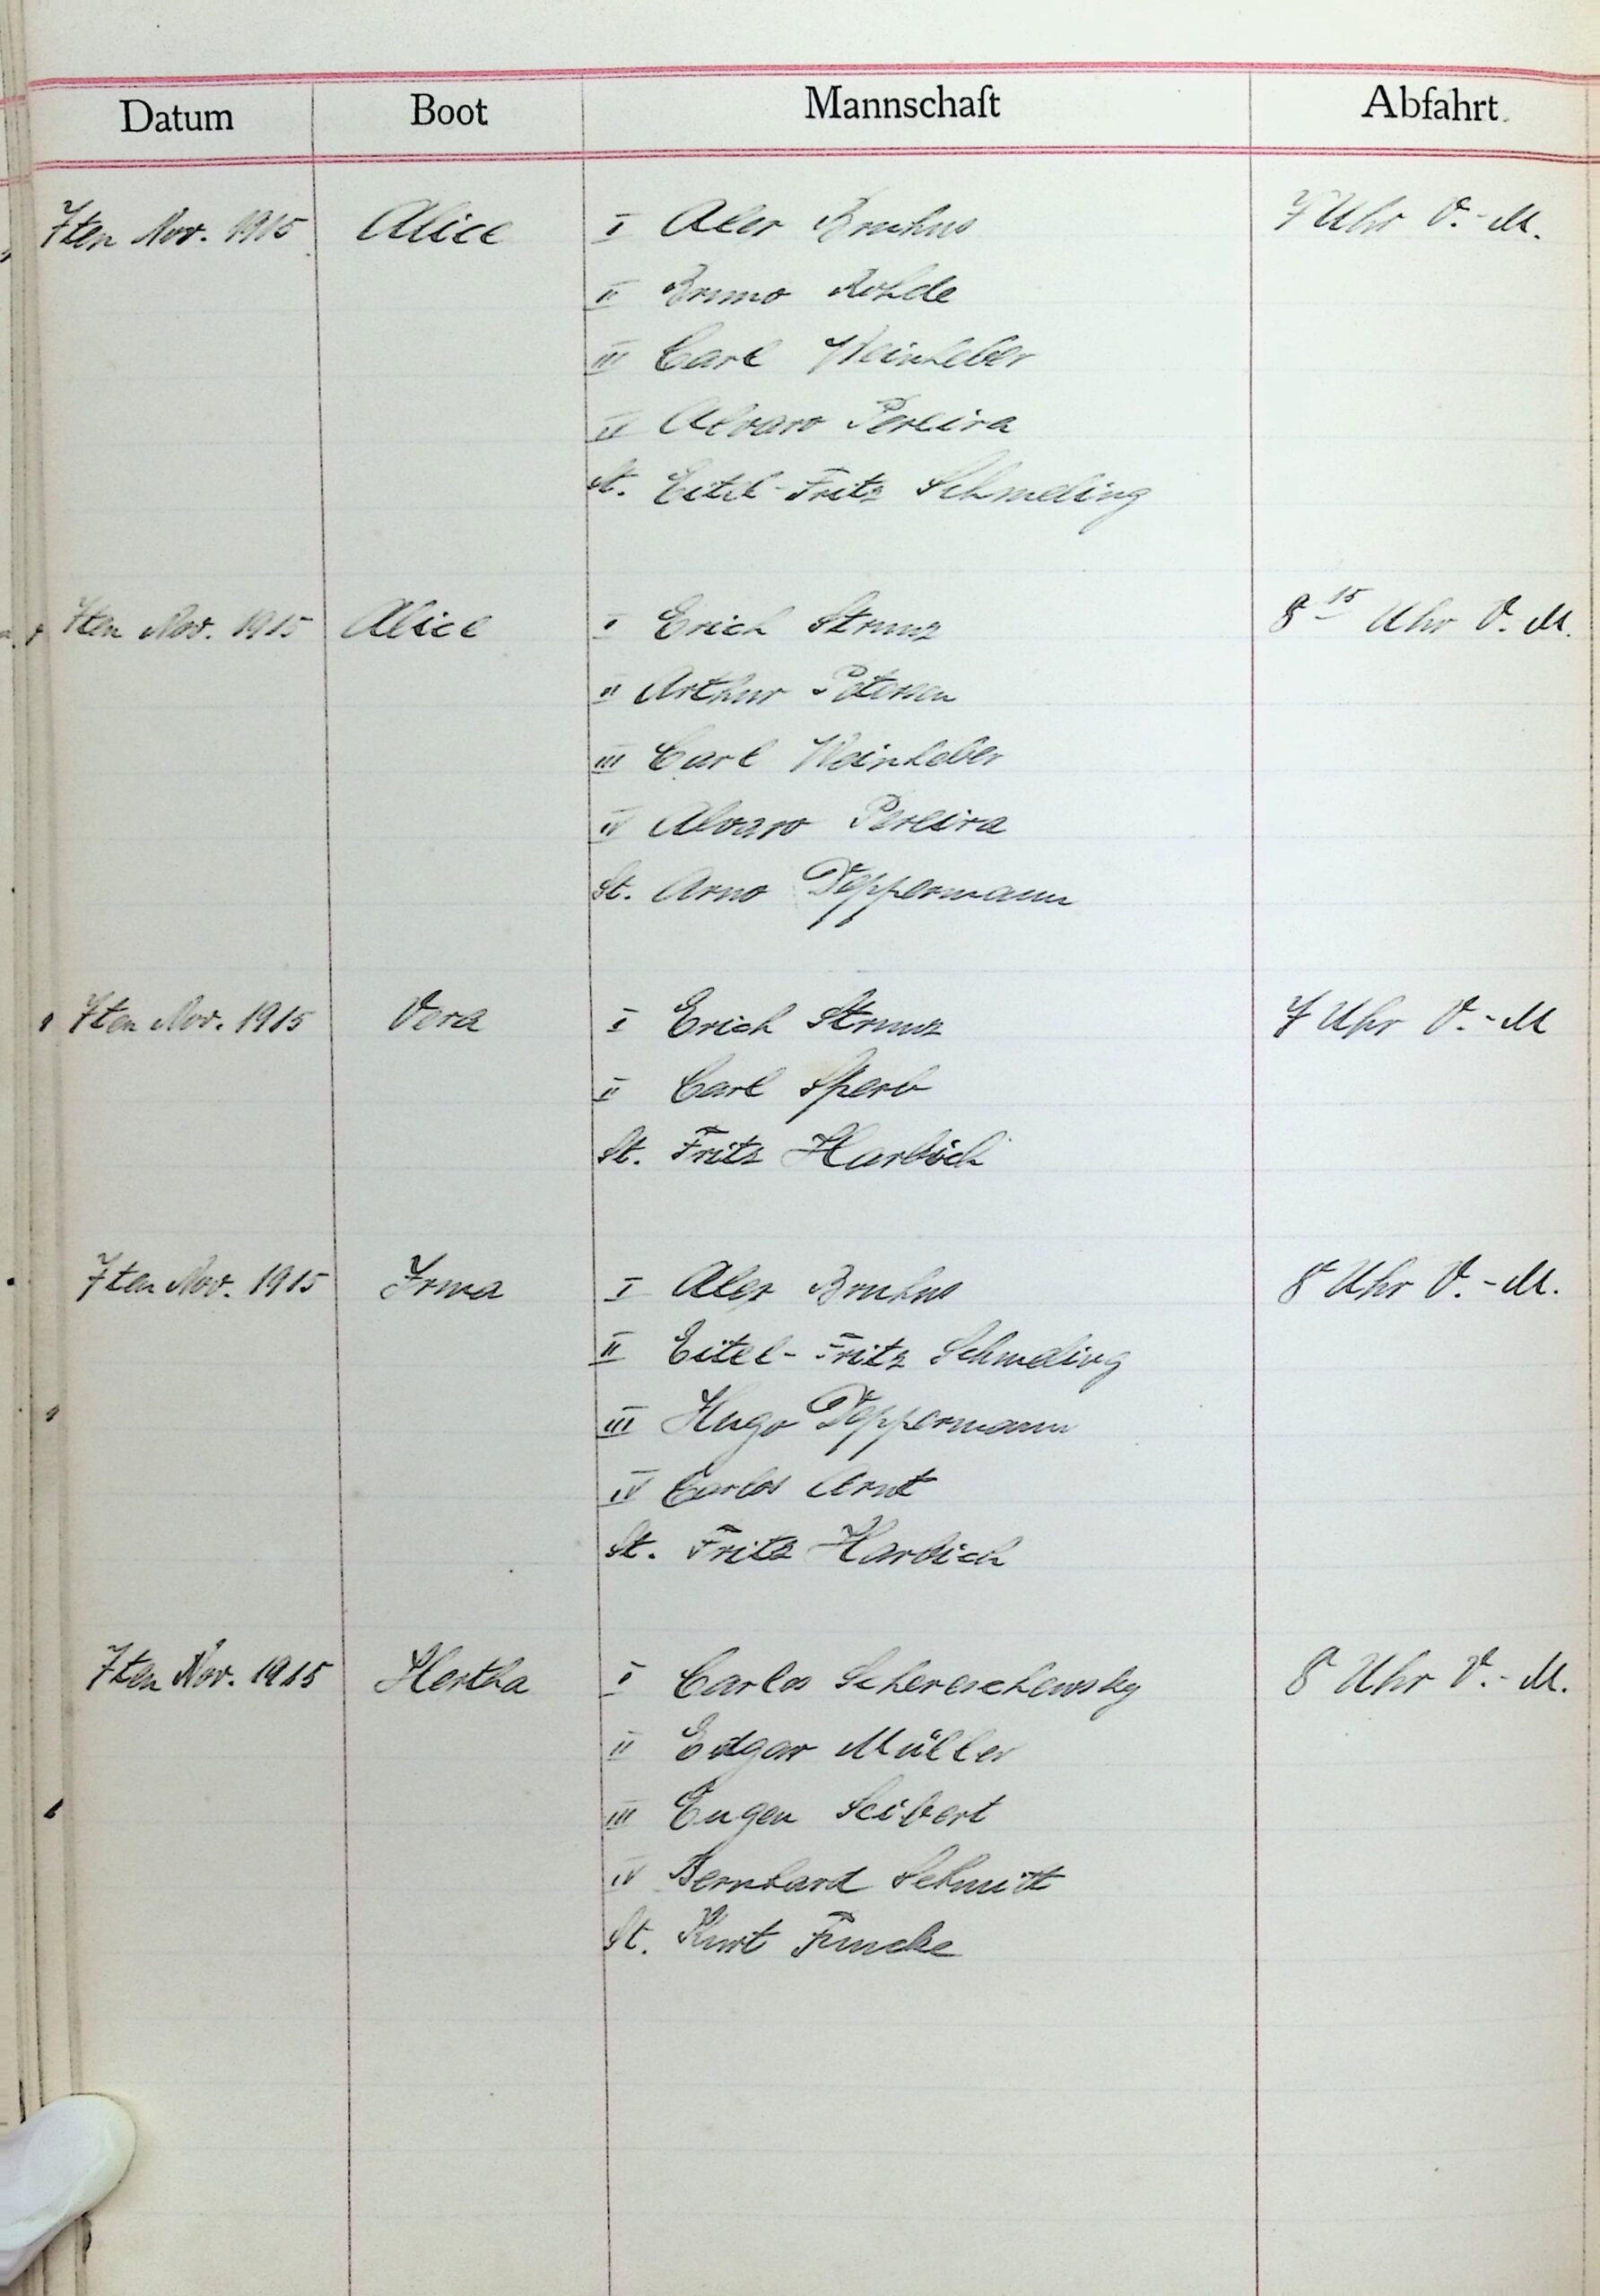 Datum Boot Mannschaft Abfahrt
7ten Nov. 1915 Alice I Alex Bruhns 7 Uhr V.-M.
II Bruno Rohde
III Carl Weinheber
IV Alvaro Pereira
St. Eitel-Fritz Schmeling
7ten Nov. 1915 Alice I Erich Strunz 8 15 Uhr V.-M.
II Arthur Petersen
III Carl Weinheber
IV Alvaro Pereira
St. Arno Deppermann
7ten Nov. 1915 Vera I Erich Strunz 7 Uhr V.-M
II Carl Sperb
St. Fritz Harbich
7ten Nov. 1915 Irma I Alex Bruhns 8 Uhr V.-M.
II Eitel-Fritz Schmeling
III Hugo Deppermann
IV Carlos Arnt
St. Fritz Harbich
7ten Nov. 1915 Hertha I Carlos Schereschewsky 8 Uhr V.-M.
II Edgar Müller
III Eugen Seibert
IV Bernhard Schmitt
St. Kurt Funcke